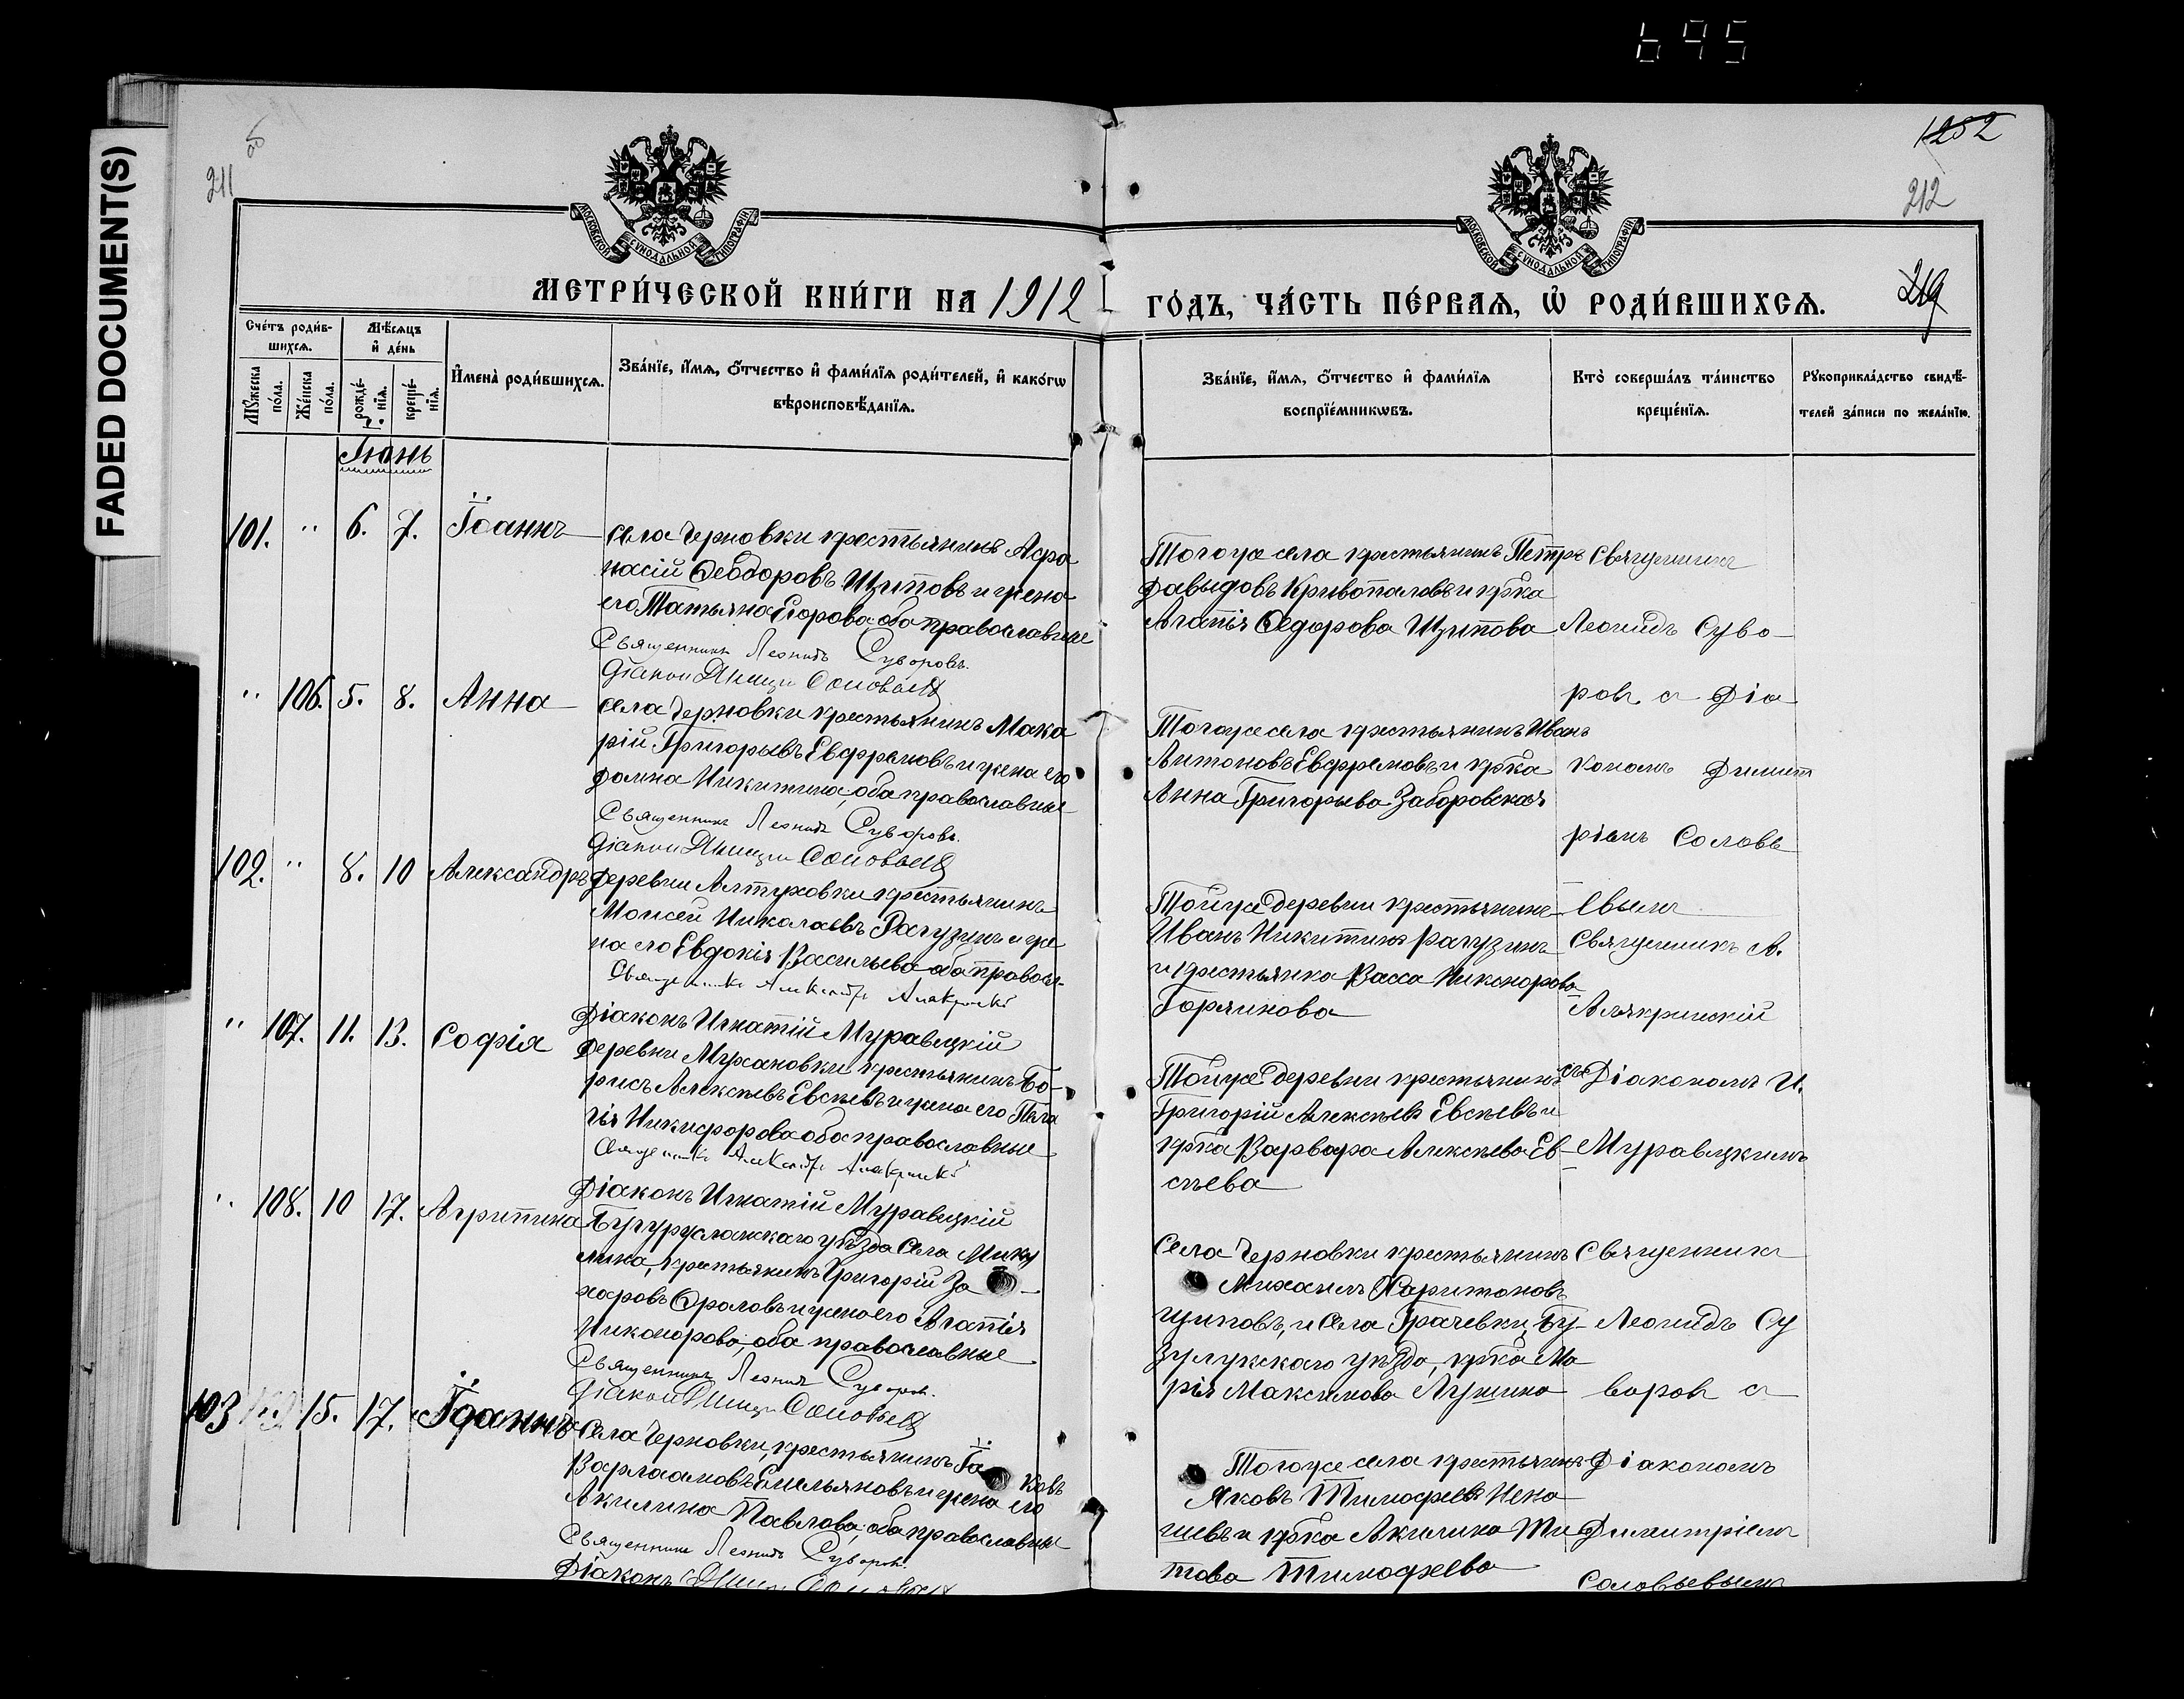 695
FADED DOCUMENT(S)
211
1252
212
219
МОСКОВСКОЙ СУНОДАЛЬНОЙ ТИПОГРАФІИ
МОСКОВСКОЙ СУНОДАЛЬНОЙ ТИПОГРАФІИ
МЕТРИ́ЧЕСКОЙ КНИ́ГИ НА 1912 ГО́ДЪ, ЧА́СТЬ ПЕ́РВАѦ, Ѡ҆ РОДИ́ВШИХСѦ.
Сче́тъ роди́в-
шихсѧ.
Мꙋ́жеска по́ла.
Же́нска по́ла.
Мѣ́сѧцъ
и҆ де́нь
рожде́-
нїѧ.
креще́-
нїѧ.
И҆мена̀ роди́вшихсѧ.
Зва́нїе, и҆́мѧ, ѻ҆́тчество и҆ фами́лїѧ роди́телей, и҆ како́гѡ
вѣроисповѣ́данїѧ.
Зва́нїе, и҆́мѧ, ѻ҆́тчество и҆ фами́лїѧ
воспрїе́мникѡвъ.
Кто̀ соверша́лъ та́инство
креще́нїѧ.
Рꙋкоприкла́дство свидѣ́-
телей за́писи по жела́нїю.
Іюнь
101. " 6. 7. Іоаннъ
Села Черновки крестьянинъ Афа
насій Ѳеодоровъ Щиповъ и жена
его Татьяна Егорова, оба православные
Священникъ Леонидъ Суворовъ.
Діаконъ Димитрій Соловьевъ
Тогоже села крестьянинъ Петръ
Давыдовъ Кривопаловъ и кр̃ка
Агапія Ѳедорова Щипова
Священникъ
Леонидъ Суво-
ровъ съ Діа
кономъ Димит
ріемъ Соловь
евымъ
" 106. 5. 8. Анна
Села Черновки крестьянинъ Мака
рій Григорьевъ Евфремовъ и жена его
Домна Никитина, оба православные
Священникъ Леонидъ Суворовъ.
Діаконъ Димитрій Соловьевъ
Тогоже села крестьянинъ Иванъ
Антоновъ Евфремовъ и кр̃ка
Анна Григорьева Заборовская
102. " 8. 10 Александръ
Деревни Алтуховки крестьянинъ
Моисей Николаевъ Рагузинъ и же
на его Евдокія Васильева оба правосл.
Священникъ Александръ Алякринскій
Діаконъ Игнатій Муравицкій
Тойже деревни крестьянинъ
Иванъ Никитинъ Рагузинъ
и крестьянка Васса Никонорова
Горяинова
Священникъ А.
Алякринскій
съ Діакономъ И.
Муравицкимъ
" 107. 11. 13. Софія
Деревни Мухановки крестьянинъ Бо-
рисъ Алексѣевъ Евсѣевъ и жена его Пела
гія Никифорова оба православные
Священникъ Александръ Алякринскій
Діаконъ Игнатій Муравицкій
Тойже деревни крестьянинъ
Григорій Алексѣевъ Евсѣевъ и
кр̃ка Варвара Алексѣева Ев-
сѣева
" 108. 10 17. Агрипина
Бугурусланскаго уѣзда Села Мику
лина, крестьянинъ Григорій За-
харовъ Ѳроловъ и жена его Агапія
Никонорова, оба православные
Священникъ Леонидъ Суворовъ.
Діаконъ Димитрій Соловьевъ
Села Черновки крестьянинъ
Михаилъ Харитоновъ
Щиповъ, и Села Грачевки, Бу-
зулукскаго уѣзда, кр̃ка Ма
рія Максимова Лушина
Священникъ
Леонидъ Су
воровъ съ
Діакономъ
Димитріемъ
Соловьевымъ
103 15. 17. Іоаннъ
Села Черновки, крестьянинъ Іаковъ
Варлаамовъ Емельяновъ и жена его
Акилина Павлова, оба православны
Священникъ Леонидъ Суворовъ.
Діаконъ Димитрій Соловьевъ
Тогоже села крестьянинъ
Яковъ Тимофеевъ Нена
шевъ и кр̃ка Акилина Ти
това Тимофеева